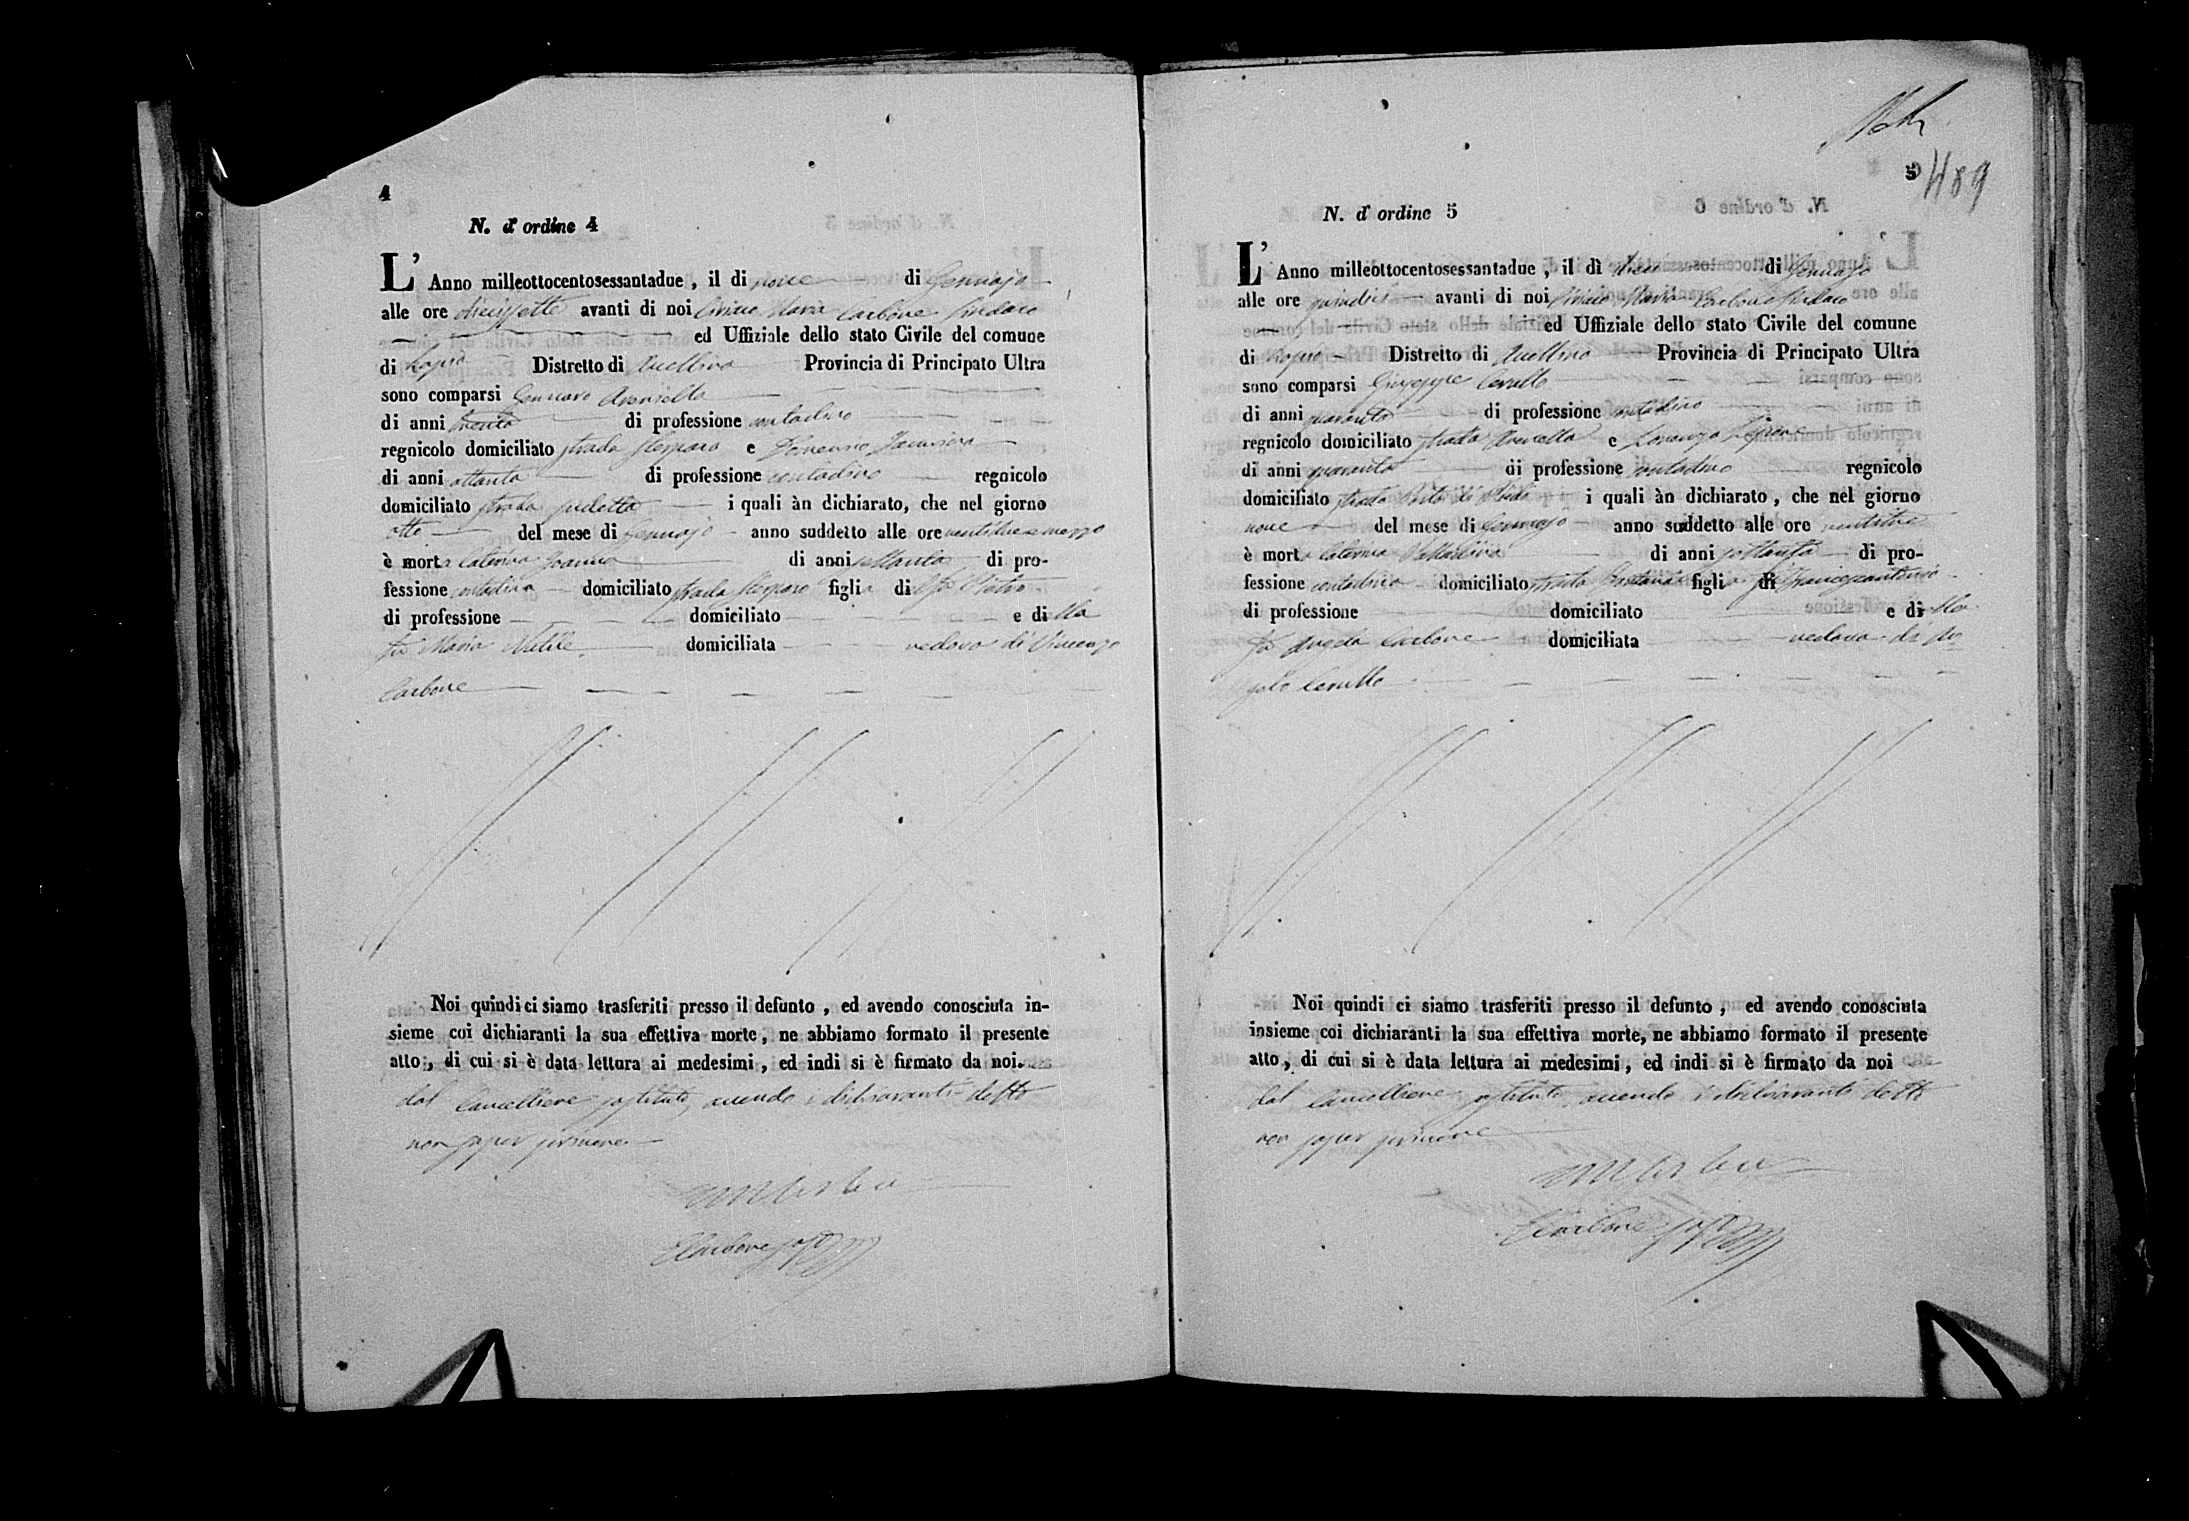 4
N. d'ordine 4
L'Anno milleottocentosessantadue, il dì nove di Gennajo
alle ore diecissette avanti di noi Maria Carbone Sindaco
ed Uffiziale dello stato Civile del comune
di Distretto di Avellino Provincia di Principato Ultra
sono comparsi Gennaro
di anni trenta di professione contadino
regnicolo domiciliato strada e
di anni ottanta di professione contadino regnicolo
domiciliato strada i quali àn dichiarato, che nel giorno
otto del mese di Gennajo anno suddetto alle ore ventidue e mezzo
è morta Caterina di anni settanta di pro-
fessione contadina domiciliato strada figlia di fu Pietro
di professione domiciliato e di lla
fu Maria domiciliata vedova di Vincenzo
Carbone
Noi quindi ci siamo trasferiti presso il defunto, ed avendo conosciuta in-
sieme coi dichiaranti la sua effettiva morte, ne abbiamo formato il presente
atto, di cui si è data lettura ai medesimi, ed indi si è firmato da noi.
dal Cancelliere sostituto, avendo i dichiaranti detto
non saper firmare
Carbone
5
489
N. d'ordine 5
L'Anno milleottocentosessantadue, il dì dieci di Gennajo
alle ore quindici avanti di noi Maria Carbone Sindaco
ed Uffiziale dello stato Civile del comune
di Distretto di Avellino Provincia di Principato Ultra
sono comparsi Giuseppe Cerullo
di anni quaranta di professione contadino
regnicolo domiciliato strada e Lorenzo
di anni quaranta di professione contadino regnicolo
domiciliato strada i quali àn dichiarato, che nel giorno
nove del mese di Gennajo anno suddetto alle ore ventitre
è morta Caterina di anni settanta di pro-
fessione contadina domiciliato strada figlia di fu Francescantonio
di professione domiciliato e di lla
fu Angela Carbone domiciliata vedova di
Cerullo
Noi quindi ci siamo trasferiti presso il defunto, ed avendo conosciuta
insieme coi dichiaranti la sua effettiva morte, ne abbiamo formato il presente
atto, di cui si è data lettura ai medesimi, ed indi si è firmato da noi
dal Cancelliere sostituto avendo i dichiaranti detto
non saper firmare
Carbone